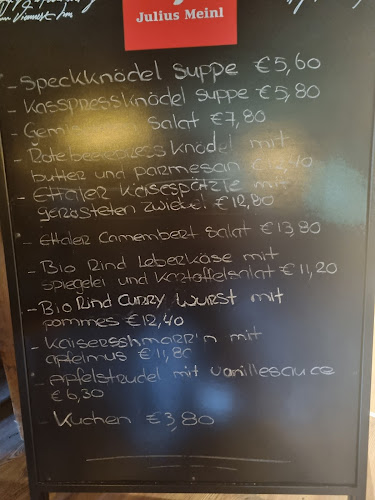 Julius Meinl
- Speckknödel Suppe €5,60
- Kasspressknödel Suppe €5,80
- Salat €7,80
- Rote beete press Knödel mit
butter und parmesan
- Ettaler Kasespätzle mit
gerösteten Zwiebel €12,80
- Ettaler Camembert Salat €13,80
- Bio Rind Leberkäse mit
spiegelei und Kartoffelsalat €11,20
- Bio Rind Curry Wurst mit
pommes €12,40
- Kaiserschmarr'n mit
apfelmus €11,80
- Apfelstrudel mit vanillesauce
€6,30
- Kuchen €3,80